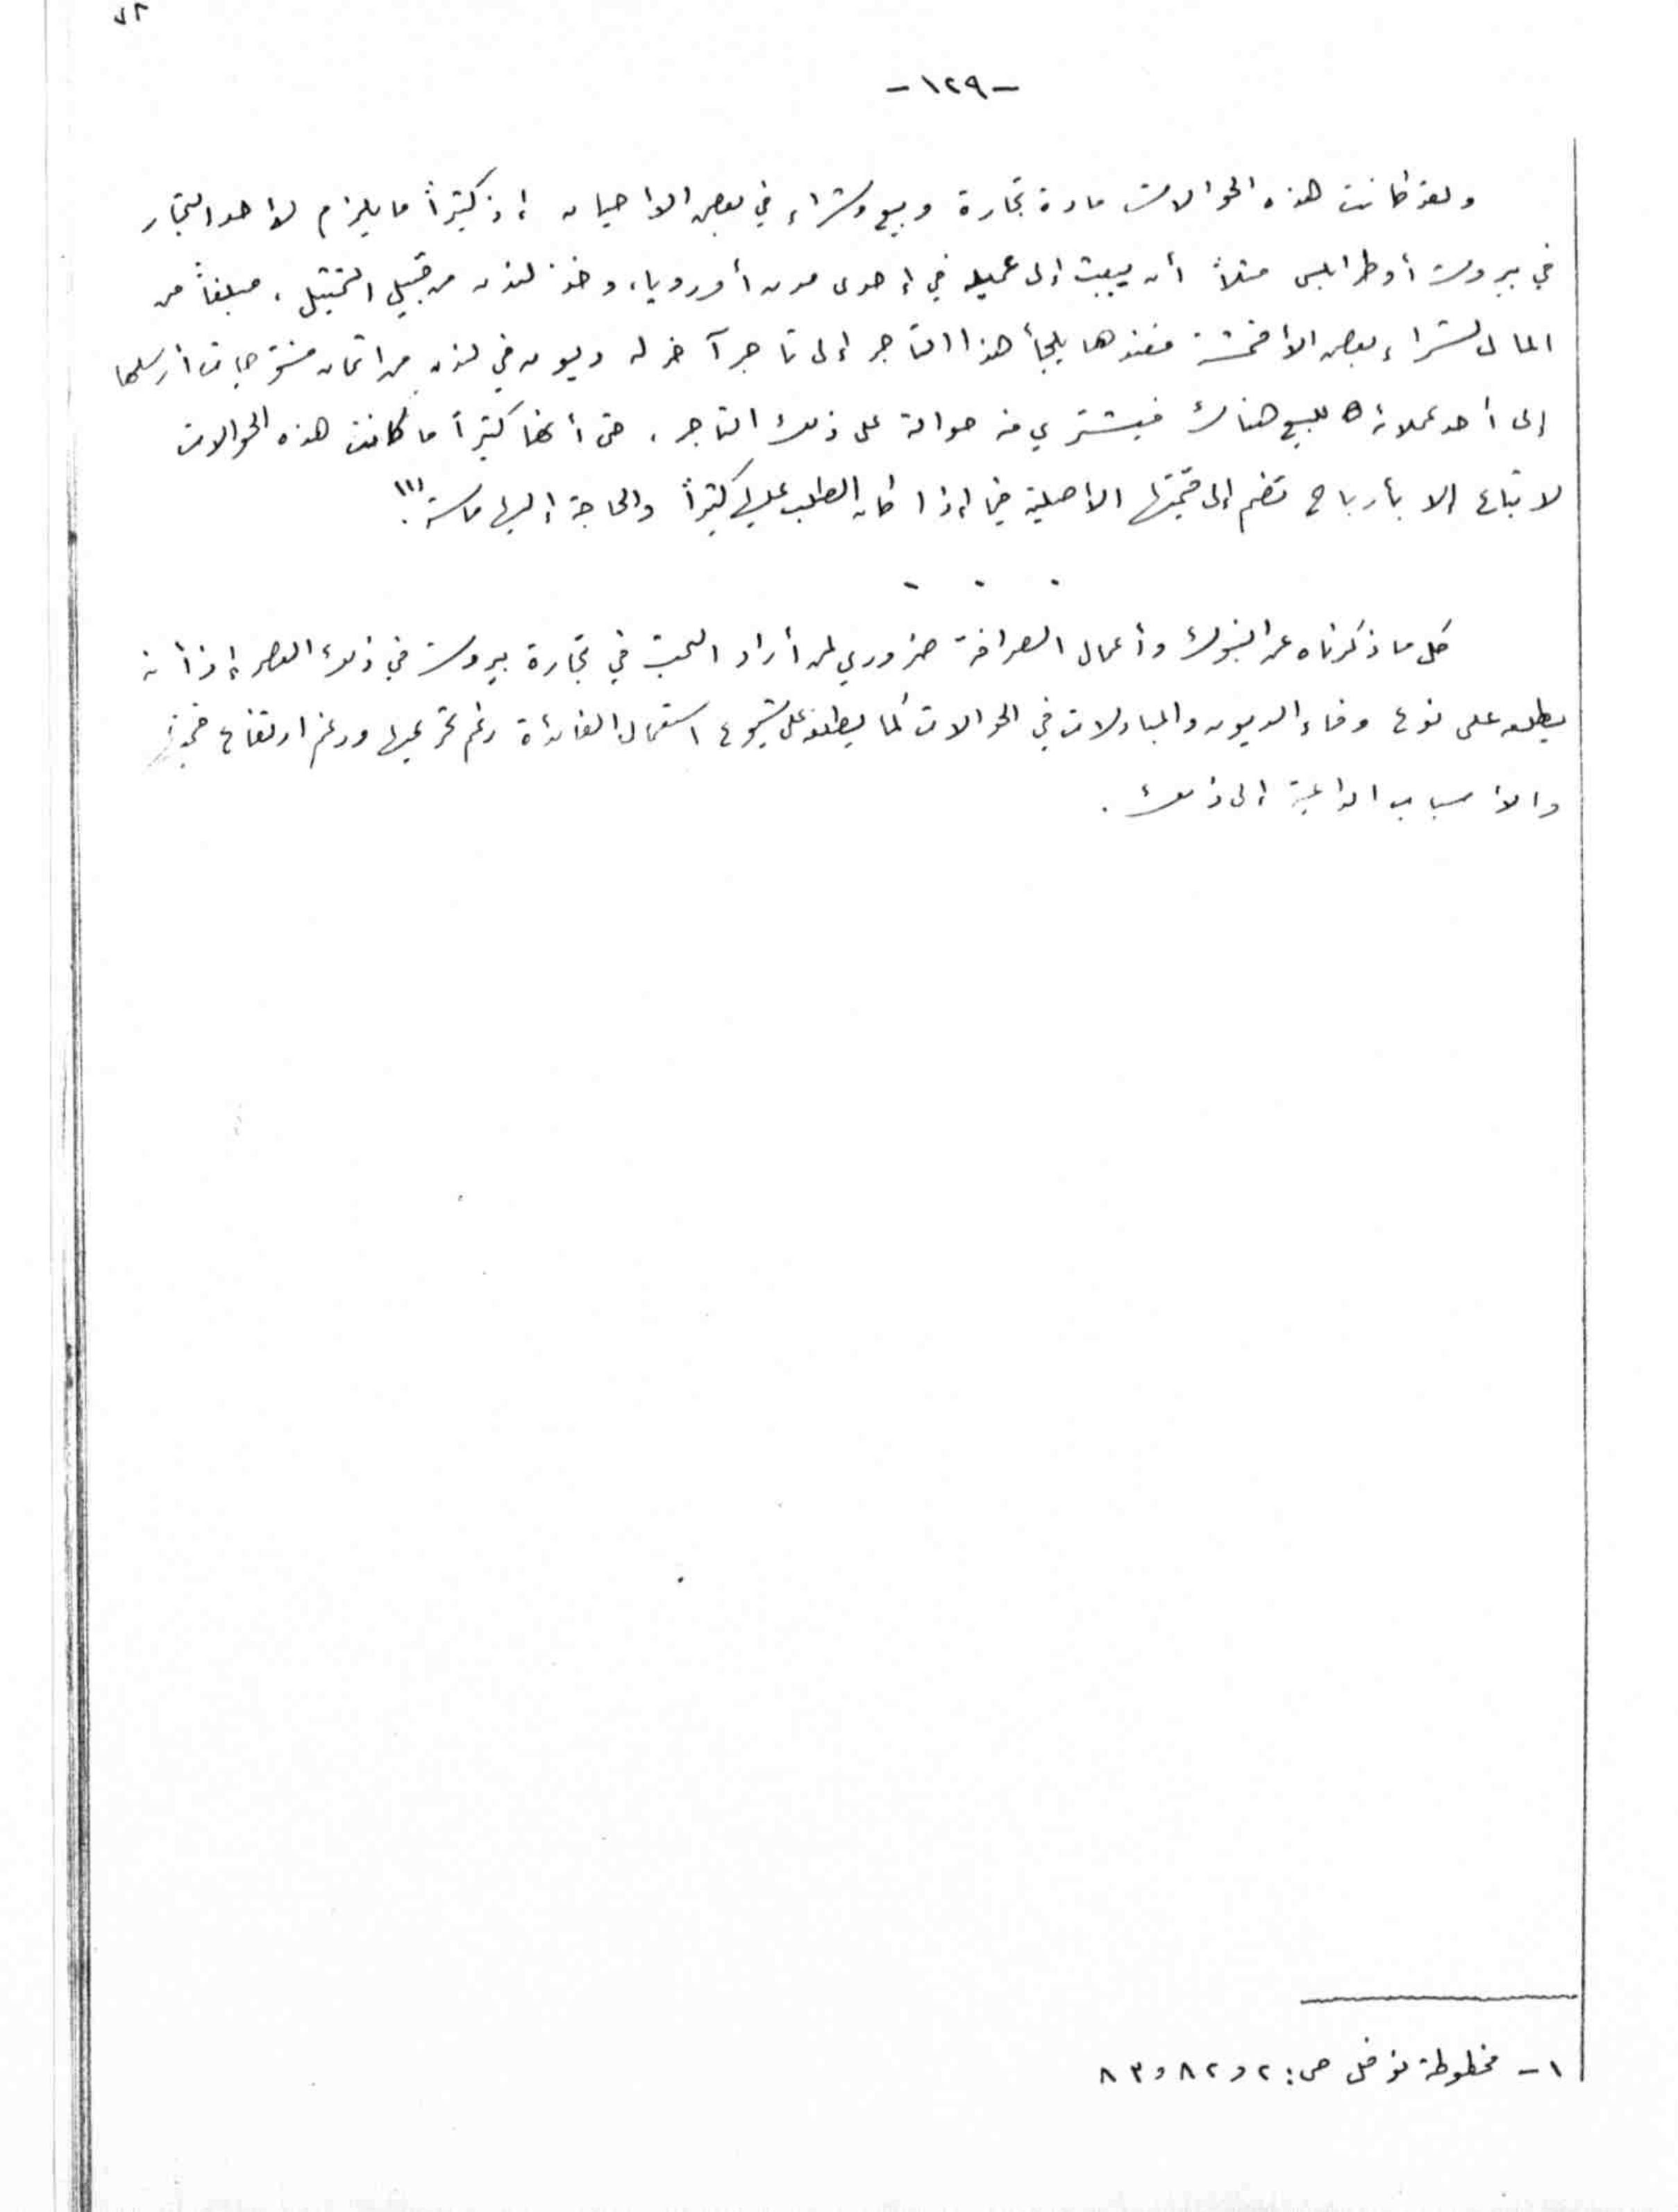 -١٢٩-
ولقد كانت هذه الحوالات مادة تجارة وبيع وشراء في بعض الاحيان إذ كثيراً ما يلزم لأحد التجار
في بيروت أو طرابلس مثلاً أن يبعث إلى عميله في إحدى مدن أوروبا، وخذ لندن من قبيل التمثيل، مبلغاً من
المال لشراء بعض الأقمشة فعندها يلجأ هذا التاجر إلى تاجر آخر له ديون في لندن من اثمان منتوجات أرسلها
إلى أحد عملائه للبيع هناك فيشتري منه حوالة على ذلك التاجر، حتى أنها كثيراً ما كانت هذه الحوالات
لا تباع إلا بأرباح تضم إلى قيمتها الأصلية فيما إذا كان الطلب عليها كثيراً والحاجة إليها ماسة (١).
. . .
كل ما ذكرناه عن البنوك وأعمال الصرافة ضروري لمن أراد البحث في تجارة بيروت في ذلك العصر إذ أنه
يطلعه على نوع وفاء الديون والمبادلات في الحوالات كما يطلعه على شيوع استعمال الفائدة رغم تحريمها ورغم ارتفاع
والأسباب الداعية إلى ذلك.
١- مخطوطة نوفل ص: ٢ و٨٢ و٨٣